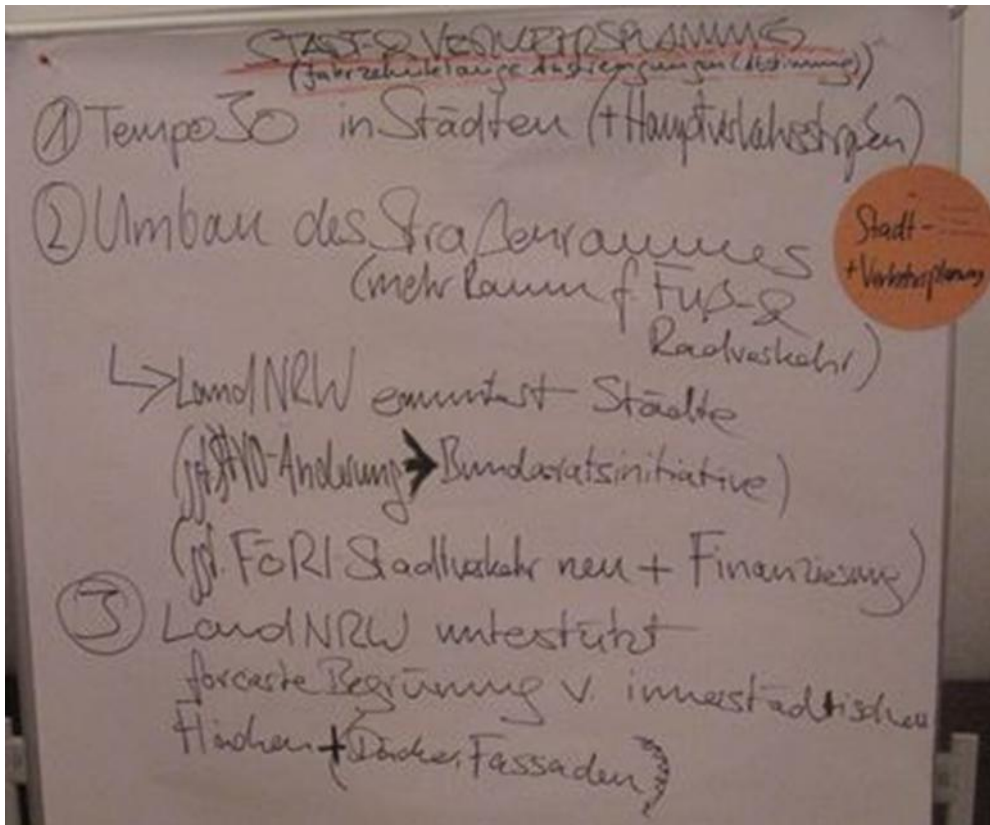 STADT- & VERKEHRSPLANUNG
(jahrzehntelange Anstrengungen (Abstimmung))
① Tempo 30 in Städten (+Hauptverkehrsstraßen)
② Umbau des Straßenraumes
(mehr Raum f Fuß- &
Radverkehr)
Stadt-
+ Verkehrsplanung
↳ Land NRW ermuntert Städte
(ggf. StVO-Änderung → Bundesratsinitiative)
(ggf. FöRI Stadtverkehr neu + Finanzierung)
③ Land NRW unterstützt
forcierte Begrünung v. innerstädtischen
Flächen + (Dächer, Fassaden)